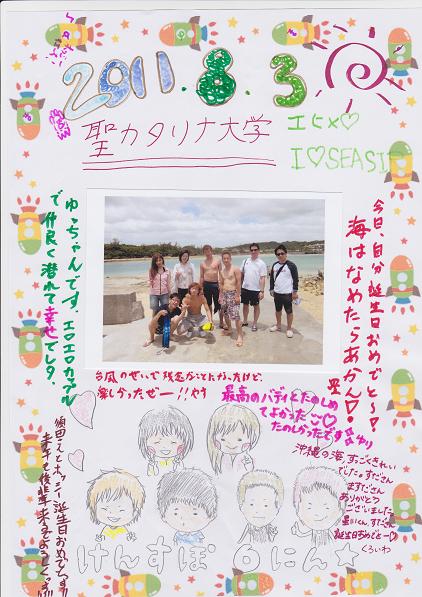 2011.8.3
聖カタリナ大学
エヒメ♡
I♡SEASIR
今日、自分誕生日おめでと〜♪
海はなめたらあかん♡!
ゆっちゃんです。エロエロカップル
で仲良く潜れて幸せでした。
台風のせいで残念がことにかったけど、
楽しかったぜー!!やす
最高のバディとたのしめ
てよかった
たのしかったです
ゆり
沖縄の海すごくきれい
でした。すださん
ますださん
ありがとう
ございました
星川くん、すださん
誕生日おめでとー♡
くろいわ
誕生日おめでとう!!
けんすぽ6にん☆